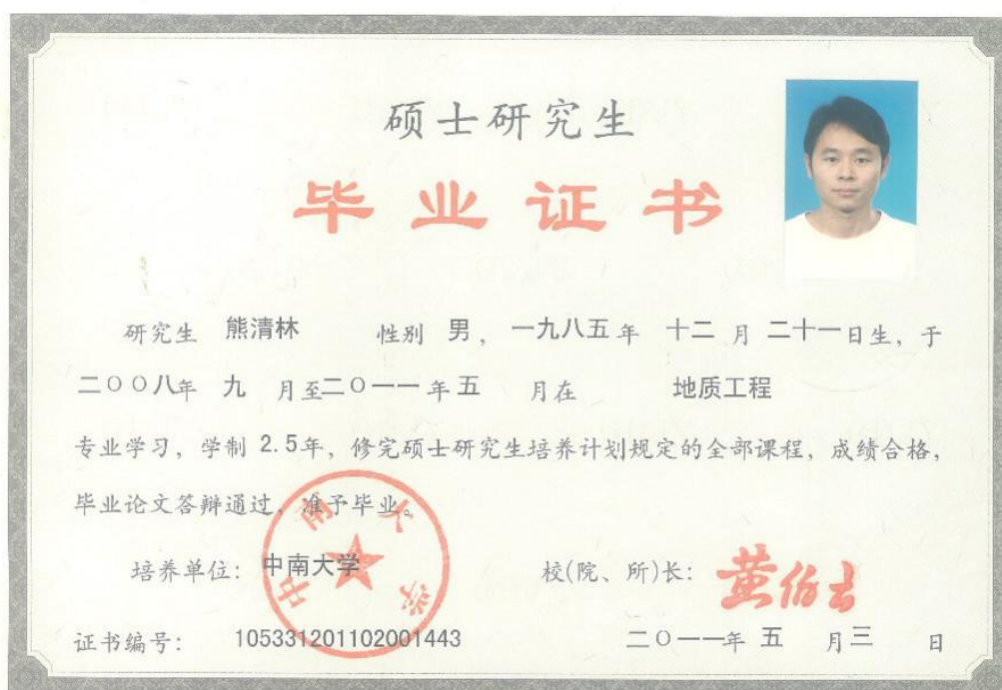 硕士研究生
毕业证书
研究生 熊清林 性别 男，一九八五年 十二 月 二十一日生，于
二〇〇八年 九 月至二〇一一年五 月在 地质工程
专业学习，学制 2.5年，修完硕士研究生培养计划规定的全部课程，成绩合格，
毕业论文答辩通过，准予毕业。
中南大学
培养单位：中南大学 校(院、所)长：黄伯云
证书编号： 105331201102001443 二〇一一年 五 月三 日